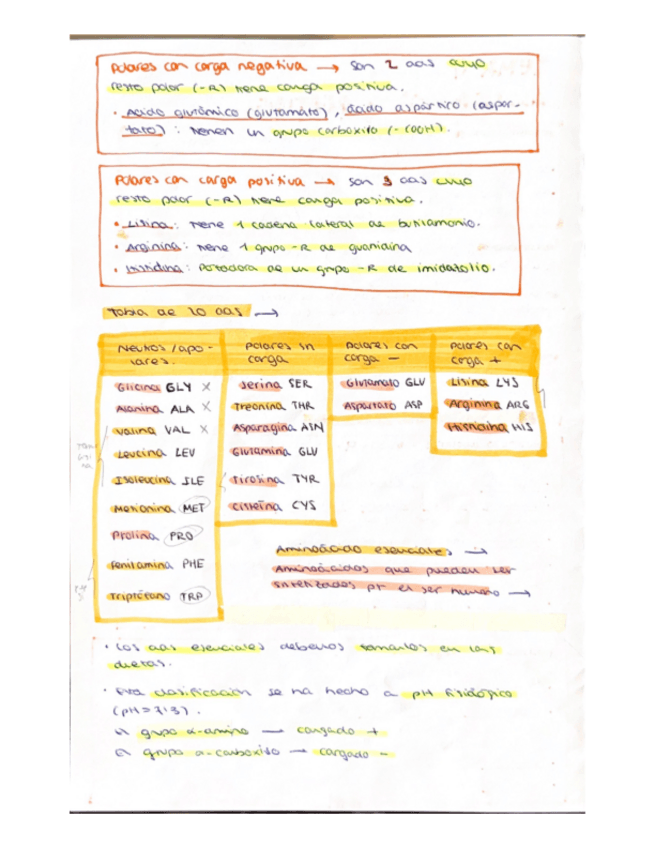 Polares con carga negativa → son 2 aas cuyo
resto polar (-R) tiene carga positiva.
· Ácido glutámico (glutamato), ácido aspártico (aspar-
tato): tienen un grupo carboxilo (-COOH).
Polares con carga positiva → son 3 aas cuyo
resto polar (-R) tiene carga positiva.
· Lisina: tiene 1 cadena lateral de butilamonio.
· Arginina: tiene 1 grupo -R de guanidina
· Histidina: Portadora de un grupo -R de imidazolio.
Tabla de 20 aas →
Neutros/apo-
lares.
Glicina GLY X
Alanina ALA X
Valina VAL X
Leucina LEV
Isoleucina ILE
Metionina MET
Prolina PRO
Fenilamina PHE
Triptófano TRP
Polares sin
carga
Serina SER
Treonina THR
Asparagina ASN
Glutamina GLU
Tirosina TYR
Cisteína CYS
Polares con
carga -
Glutamato GLU
Aspartato ASP
Polares con
carga +
Lisina LYS
Arginina ARG
Histidina HIS
Aminoácido esenciales →
Aminoácidos que pueden ser
sintetizados pr el ser humano →
· Los aas esenciales debemos tomarlos en las
dietas.
· Esta clasificación se ha hecho a pH fisiológico
(pH = 7'3).
grupo α-amino → cargado +
grupo α-carboxilo → cargado -